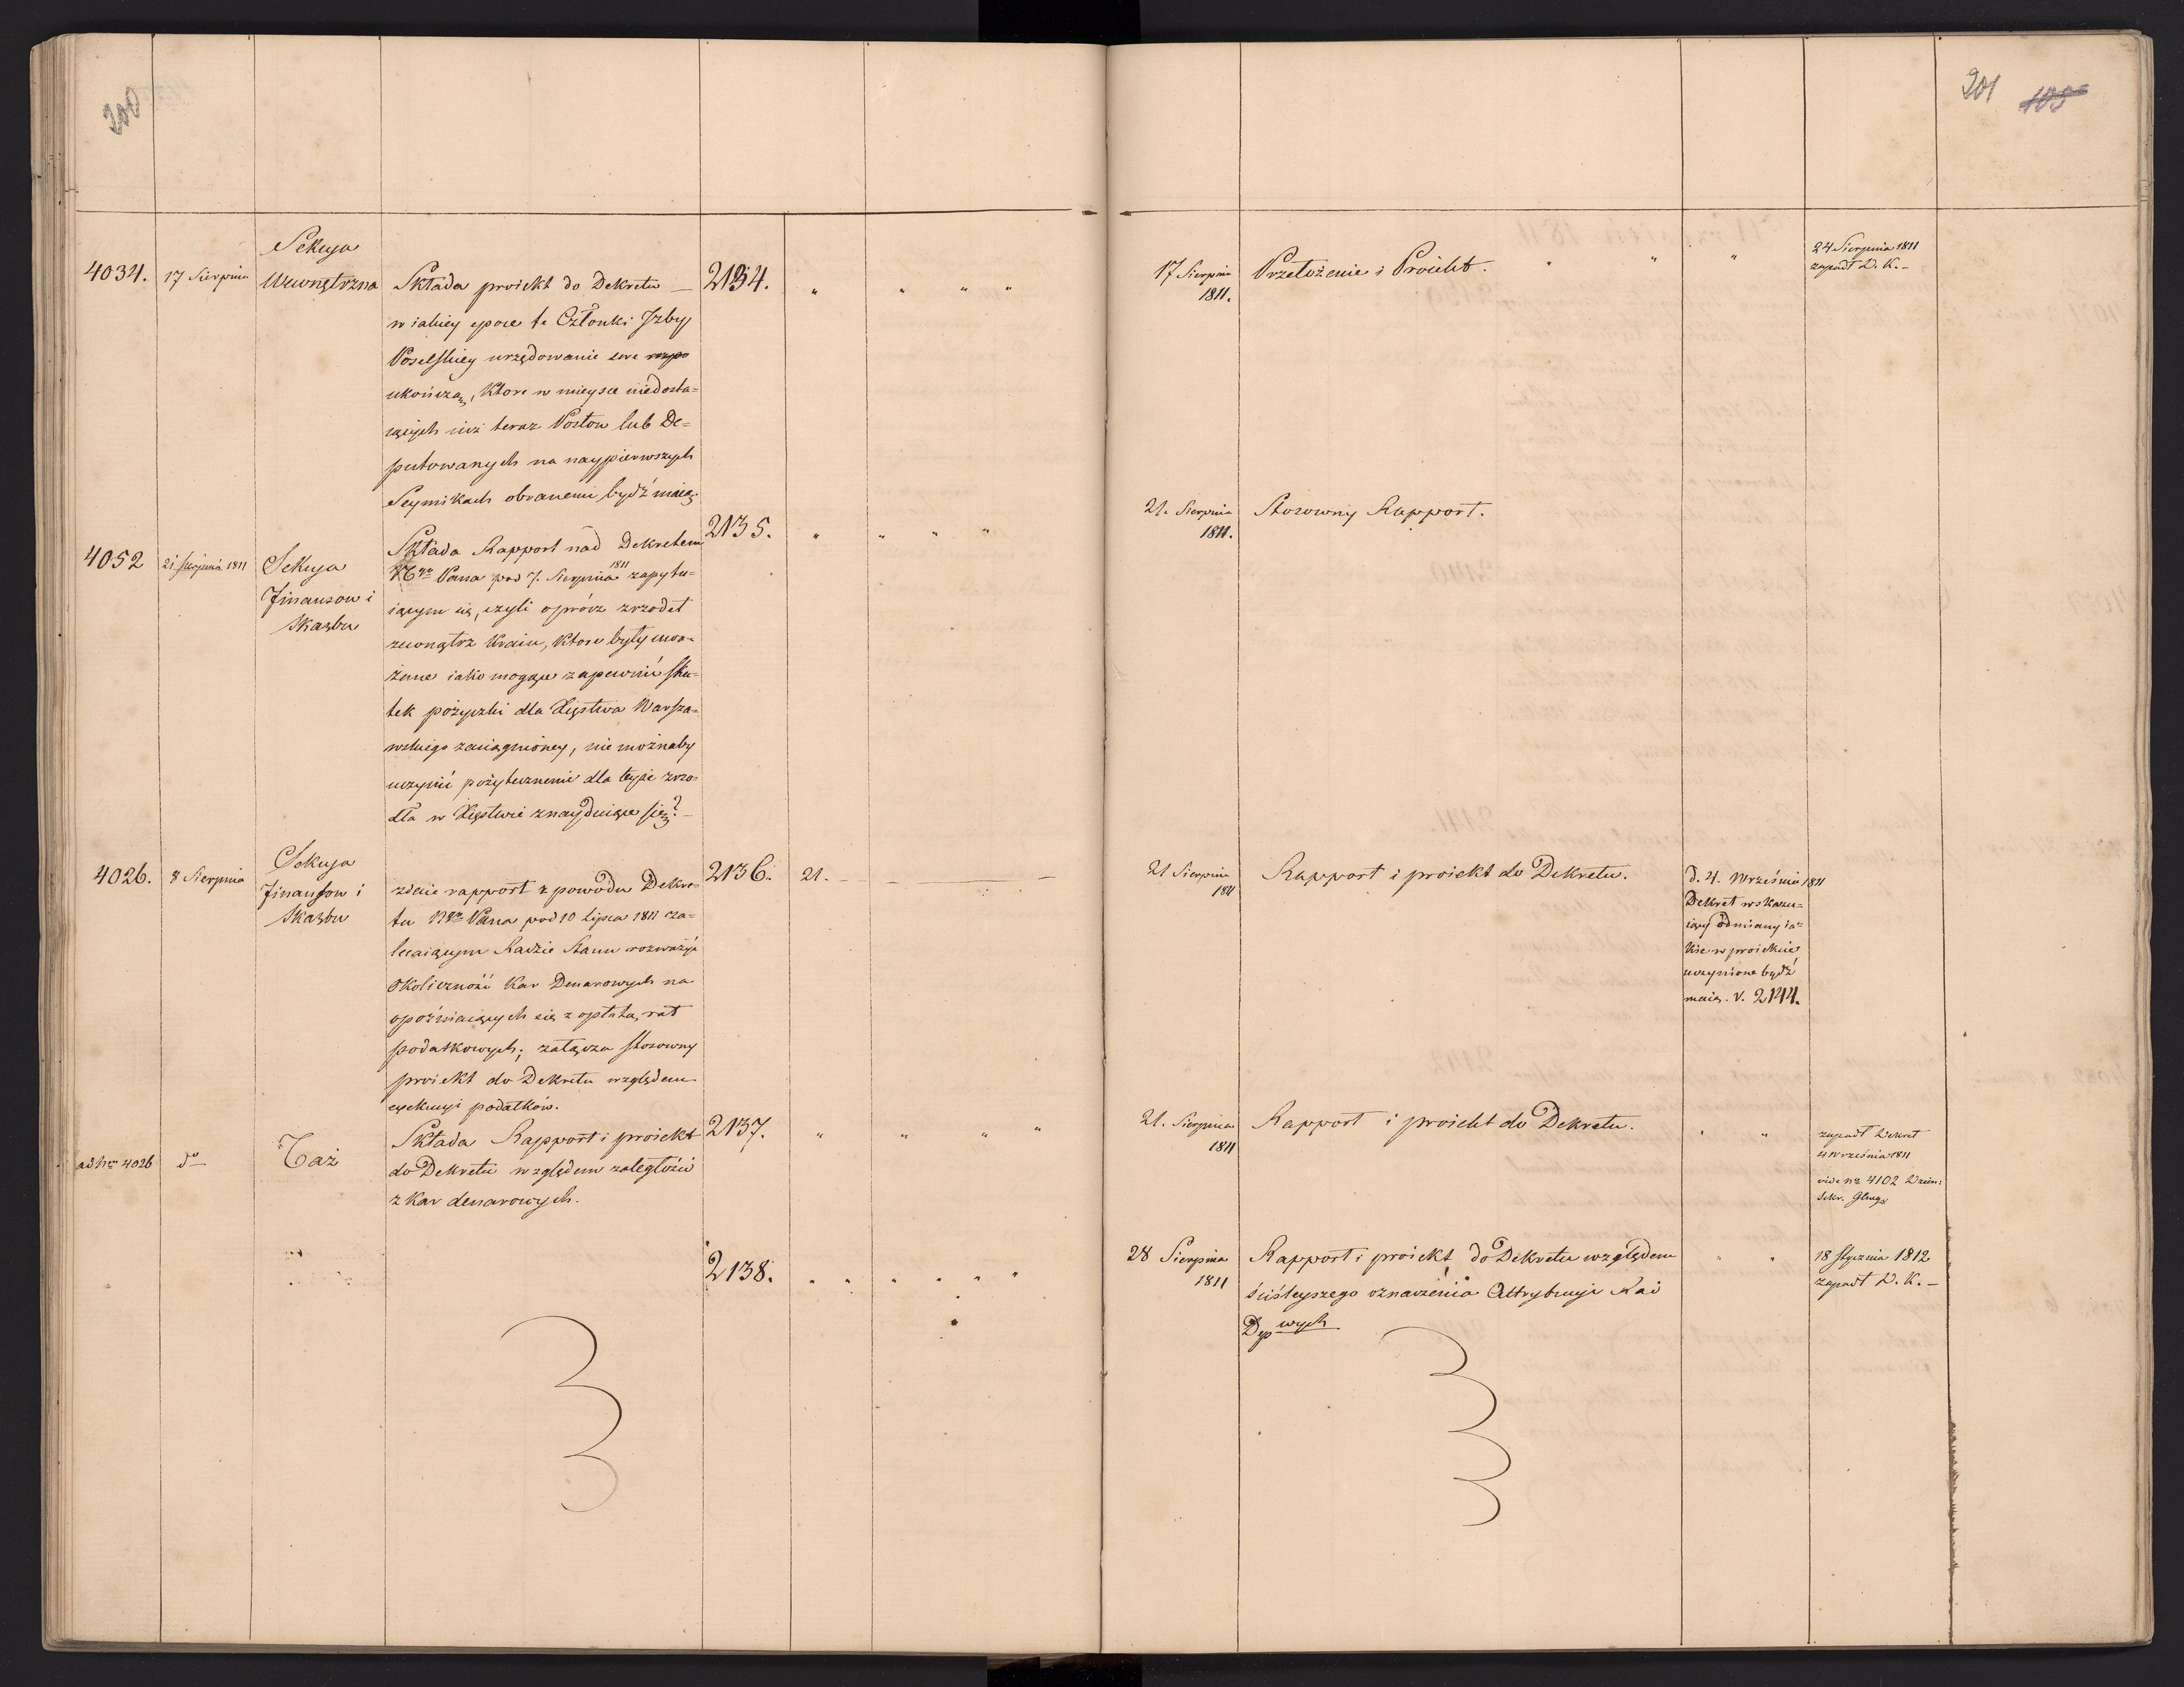 200
201 100
4034.
17 Sierpnia
Sekcya
Wewnętrzna
Składa proiekt do Dekretu —
w iakiey epoce te Członki Jzby
Poselskiey urzędowanie swe
ukończą, Ktore w mieysce niedosta=
iących iuż teraz Posłow lub De=
putowanych na naypierwszych
Seymikach obranemi bydź maią.
2134.
17 Sierpnia
1811.
Przełożenie i Proiekt.
24 Sierpnia 1811
zapadł D. K. —
4052
21 Sierpnia 1811
Sekcya
Finansow i
Skarbu
Składa Rapport nad Dekretem
Pana pod 7. Sierpnia 1811 zapytu=
iącym się, czyli oprócz zrzodeł
zewnątrz Kraiu, Ktore były uwa=
żane iako mogące zapewnić sku=
tek pożyczki dla Xięstwa Warsza=
wskiego zaciągnioney, nie możnaby
uczynić pożytecznemi dla teyże zrzo=
dła w Xięstwie znayduiące się? —
2135.
21. Sierpnia
1811.
Stosowny Rapport.
4026.
8 Sierpnia
Sekcya
Finansow i
Skarbu
zdaie rapport z powodu Dekre=
tu Pana pod 10 Lipca 1811 za=
lecaiącym Radzie Stanu rozważyć
okoliczność Kar Denarowych na
opóźniaiących się z opłatą rat
podatkowych; załącza stosowny
proiekt do Dekretu względem
exekucyi podatków.
2136.
21.
21 Sierpnia
1811
Rapport i proiekt do Dekretu.
d. 4. Września 1811
Dekret wskazu=
iący odmiany ia=
kie w proiekcie
uczynione bydź
maią. V. 2144.
ad Nrm 4026
do
Taż
Składa Rapport i proiekt
do Dekretu względem zaległości
z Kar denarowych.
2137.
21. Sierpnia
1811
Rapport i proiekt do Dekretu.
zapadł Dekret
4 Września 1811
vide nr 4102 Dzien:
Sekr. Glnego
2138.
28 Sierpnia
1811
Rapport i proiekt do Dekretu względem
ściśleyszego oznaczenia Attrybucyi Rad
Dep wych
18 Stycznia 1812
zapadł D. K. —